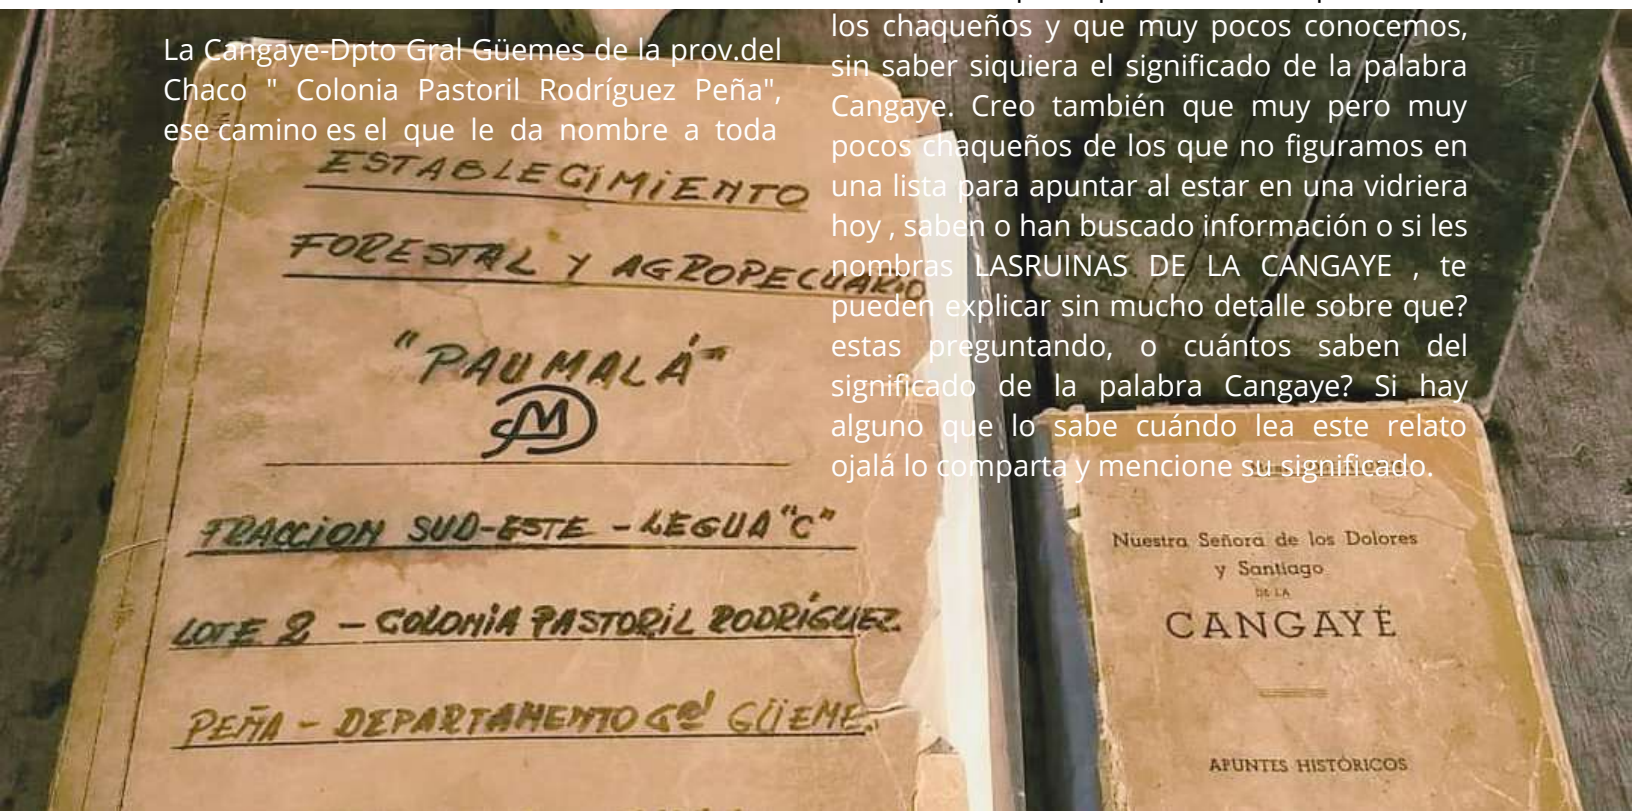 La Cangaye-Dpto Gral Güemes de la prov.del
Chaco " Colonia Pastoril Rodríguez Peña",
ese camino es el que le da nombre a toda
los chaqueños y que muy pocos conocemos,
sin saber siquiera el significado de la palabra
Cangaye. Creo también que muy pero muy
pocos chaqueños de los que no figuramos en
una lista para apuntar al estar en una vidriera
hoy , saben o han buscado información o si les
nombras LASRUINAS DE LA CANGAYE , te
pueden explicar sin mucho detalle sobre que?
estas preguntando, o cuántos saben del
significado de la palabra Cangaye? Si hay
alguno que lo sabe cuándo lea este relato
ojalá lo comparta y mencione su significado.
ESTABLECIMIENTO
FORESTAL Y AGROPECUARIO
"PAUMALÁ"
M
FRACCION SUD-ESTE - LEGUA "C"
LOTE 2 - COLONIA PASTORIL RODRÍGUEZ
PEÑA - DEPARTAMENTO Gel GÜEME.
Nuestra Señora de los Dolores
y Santiago
DE LA
CANGAYÉ
APUNTES HISTÓRICOS